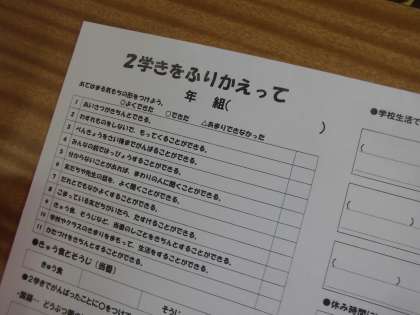 2学きをふりかえって
年 組(
)
あてはまる気もちの形をつけよう。
○よくできた ○できた △あまりできなかった
1 あいさつがきちんとできる。
2 わすれものをしないで、もってくることができる。
3 べんきょうをさい後までがんばることができる。
4 みんなの前ではっぴょうすることができる。
5 分からないことがあれば、まわりの人に聞くことができる。
6 友だちや先生の話を、よく聞くことができる。
7 だれとでもなかよくすることができる。
8 こまっている友だちがいたら、たすけることができる。
9 きゅう食、そうじなど、当番のしごとをきちんとすることができる。
10 学校やクラスのきまりを守って、生活をすることができる。
11 かたづけをきちんとすることができる。
●きゅう食とそうじ(当番)
きゅう食
そうじ
●2学きでがんばったことに○をつけて
・国語…
●学校生活で
(
(
(
●休み時間に